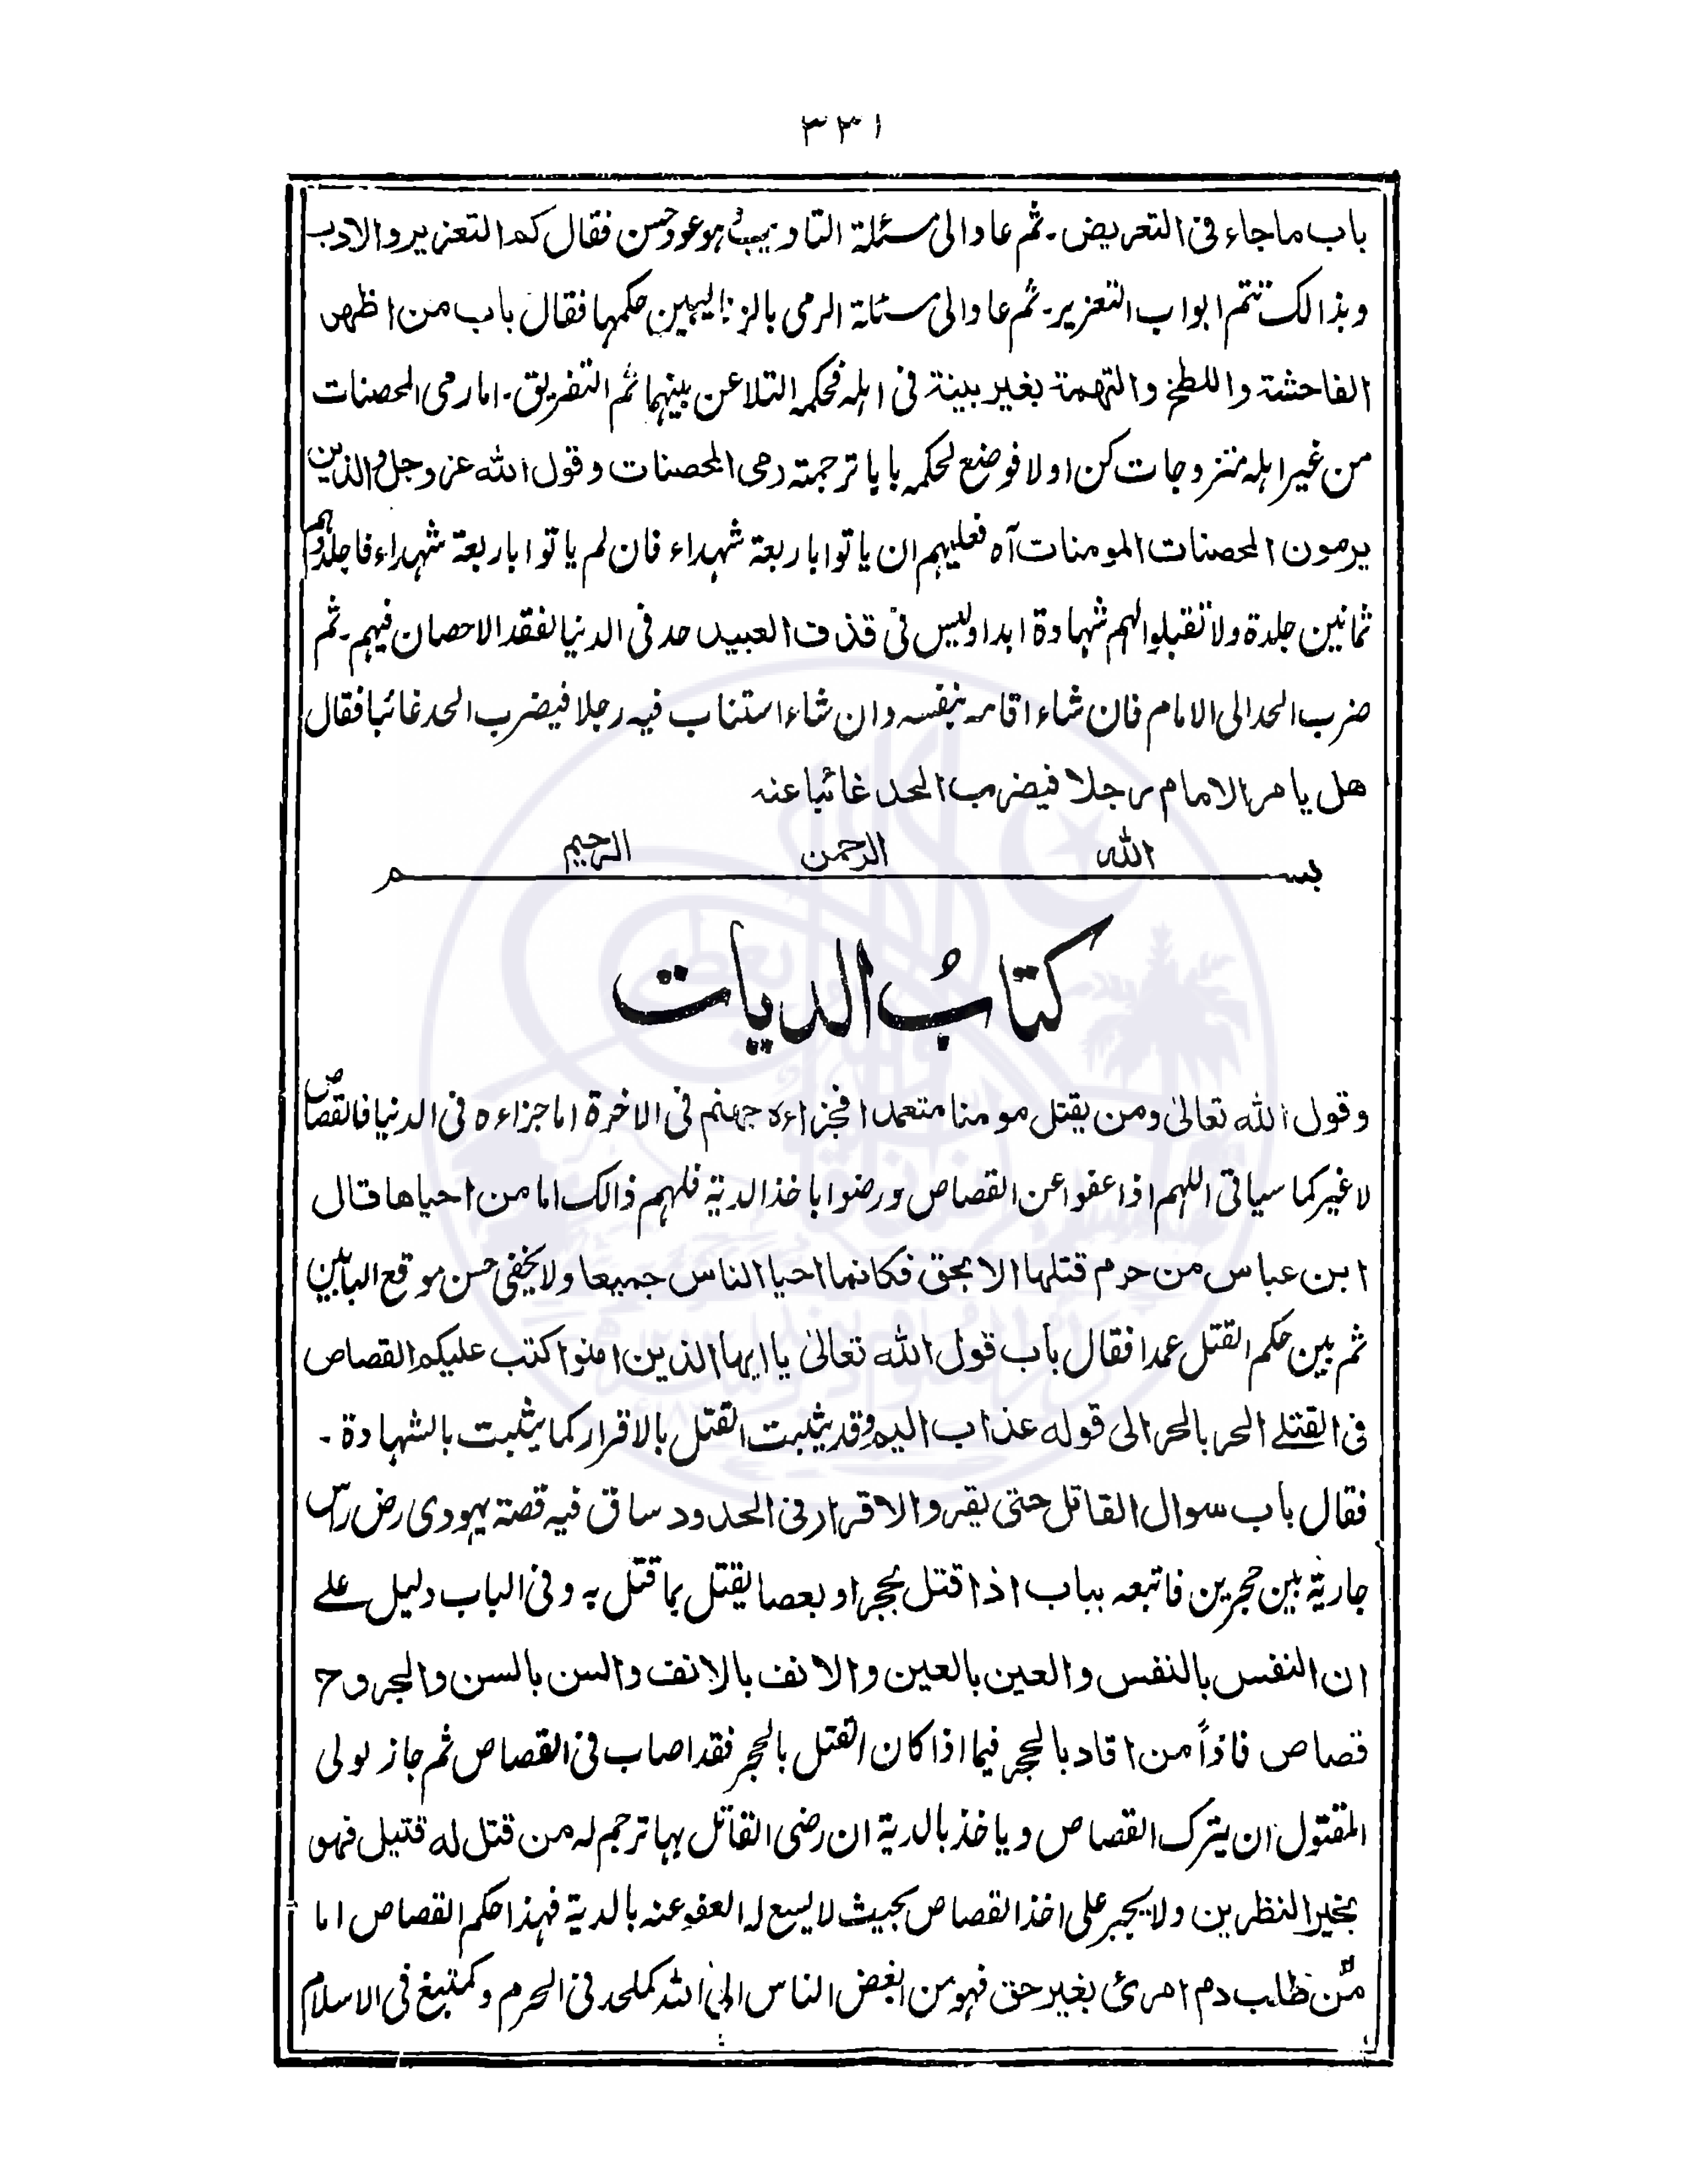 ٣٣١
باب ماجاء فى التعريض۔ ثم عاد الى مسئلة التاديب هو عود حسن فقال كم التعزير والادب
وبذالك تتم ابواب التعزير۔ ثم عاد الى مسئلة الرمى بالزنا ليبين حكمها فقال باب من اظهر
الفاحشة واللطخ والتهمة بغير بينة فى اهله فحكمه التلاعن بينهما ثم التفريق۔ اما رمى المحصنات
من غير اهله متزوجات كن اولا فوضع لحكمه بابا ترجمته رمى المحصنات وقول الله عزوجل والذين
يرمون المحصنات المومنات آه فعليهم ان ياتوا باربعة شهداء فان لم ياتوا باربعة شهداء فاجلدوهم
ثمانين جلدة ولا تقبلوا لهم شهادة ابدا وليس فى قذف العبيد حد فى الدنيا لفقد الاحصان فيهم۔ ثم
ضرب الحد الى الامام فان شاء اقامه بنفسه وان شاء استناب فيه رجلا فيضرب الحد غائبا فقال
هل يامر الامام رجلا فيضرب الحد غائبا عنه
بسم الله الرحمن الرحيم
كتابُ الديات
وقول الله تعالىٰ ومن يقتل مومنا متعمدا فجزاءه جهنم فى الاخرة اما جزاءه فى الدنيا فالقصاص
لا غير كما سياتى اللهم اذا عفوا عن القصاص ورضوا باخذ الدية فلهم ذالك اما من احياها قال
ابن عباس من حرم قتلها الا بحق فكانما احيا الناس جميعا ولا يخفى حسن موقع البابين
ثم بين حكم القتل عمدا فقال باب قول الله تعالىٰ يا ايها الذين امنوا كتب عليكم القصاص
فى القتلے الحر بالحر الى قوله عذاب اليم وقد يثبت القتل بالاقرار كما يثبت بالشهادة۔
فقال باب سوال القاتل حتى يقر والاقرار فى الحدود ساق فيه قصة يهودى رض راس
جارية بين حجرين فاتبعه بباب اذا قتل بحجر او بعصا يقتل بما قتل به وفى الباب دليل علے
ان النفس بالنفس والعين بالعين والانف بالانف والسن بالسن والجروح
قصاص فاذاً من اقاد بالحجر فيما اذا كان القتل بالحجر فقد اصاب فى القصاص ثم جاز لولى
المقتول ان يترك القصاص وياخذ بالدية ان رضى القاتل بها ترجم له من قتل له قتيل فهو
بخير النظرين ولا يجبر على اخذ القصاص بحيث لا يسع له العفو عنه بالدية فهذا حكم القصاص اما
من طلب دم امرئ بغير حق فهو من ابغض الناس الى الله كملحد فى الحرم وكمتبغ فى الاسلام